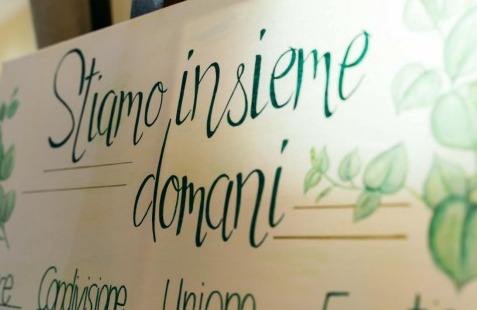 Stiamo insieme
domani
Condivisione Unione